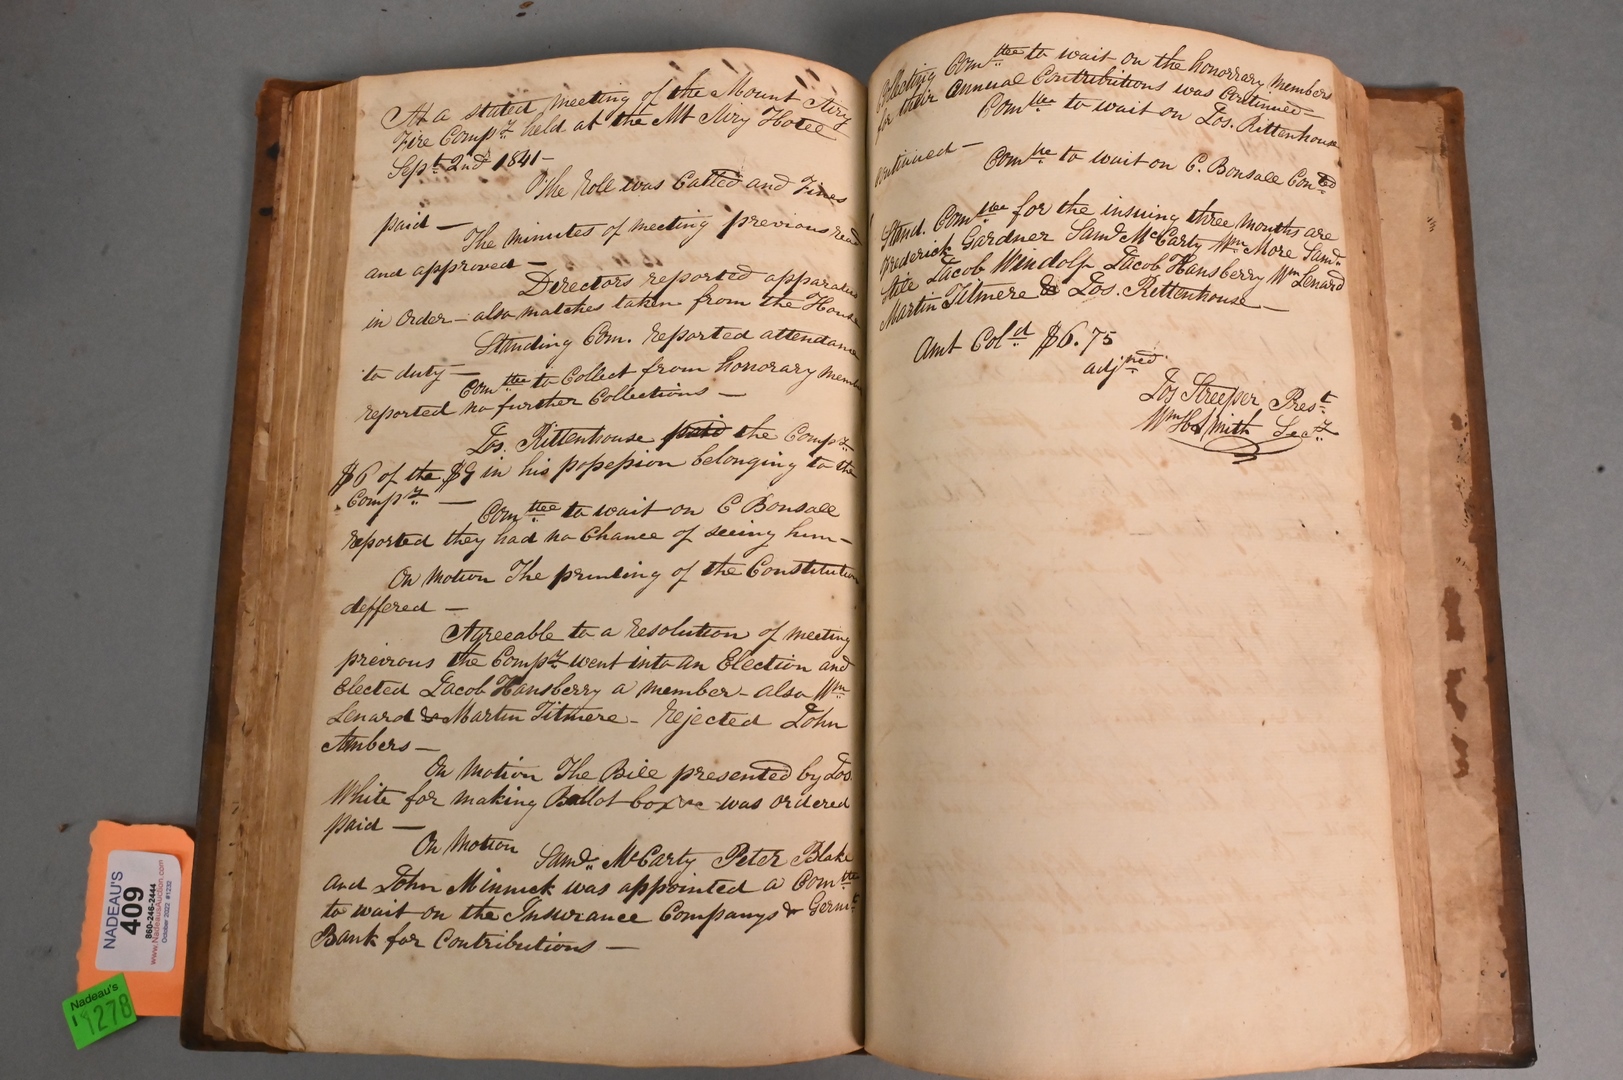 At a stated meeting of the Mount Airy
Fire Compy held at the Mt Airy Hotel
Sept 2nd 1841 -
The Roll was Called and Fines
paid -
The minutes of meeting previous read
and approved -
Directors reported apparatus
in Order - also matches taken from the House
Standing Com. reported attendance
to duty -
Comttee to Collect from honorary memb
reported no further Collections -
Jos. Rittenhouse paid the Compy
$6 of the $9 in his possession belonging to the
Compy -
Comttee to wait on C Bonsall
reported they had no Chance of seeing him -
On Motion The printing of the Constitution
deffered -
Agreeable to a resolution of meeting
previous the Compy went into an Election and
Elected Jacob Hansberry a member - also Wm
Lenard & Martin Titmere - rejected John
Ambers -
On Motion The Bill presented by Jos.
White for making Ballot box &c was ordered
paid -
On Motion Saml. McCarty Peter Blake
and John Minnick was appointed a Comttee
to wait on the Insurance Companys & Germt
Bank for Contributions -
Collecting Comttee to wait on the honorrary members
for their annual Contributions was Continued -
Comttee to wait on Jos. Rittenhouse
Continued -
Comttee to wait on C. Bonsall Conted
Stand. Comttee for the insuing three months are
Frederick Gardner Saml McCarty Wm More Saml.
Jacob Windolf Jacob Hansberry Wm Lenard
Martin Titmere & Jos. Rittenhouse -
Amt Cold $6.75
adjned
Jos Streeper Prest.
Wm H Smith Secy
NADEAU'S
409
860-246-2444
www.NadeausAuction.com
October 2022 #1232
Nadeau's
1278